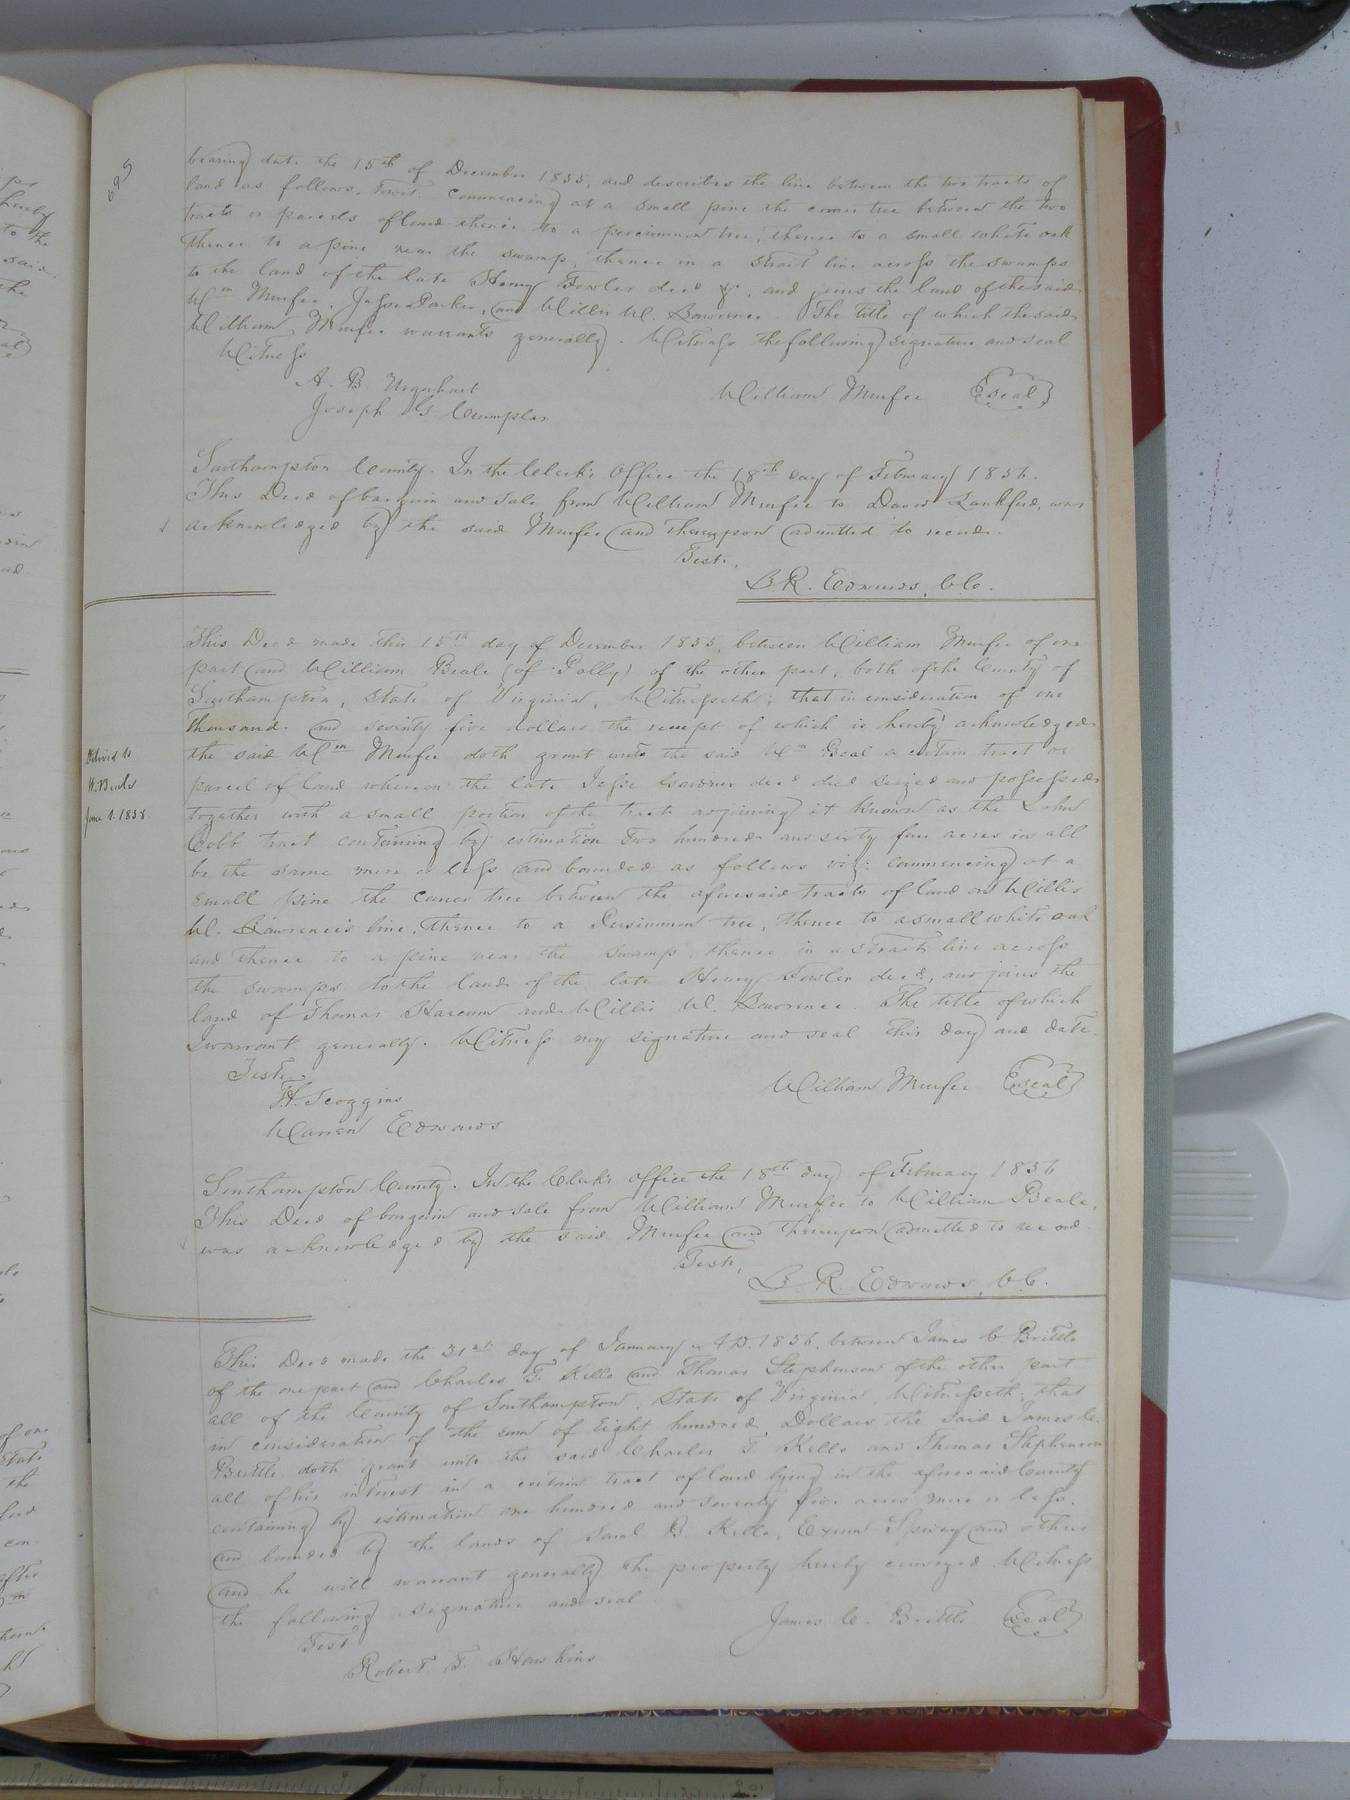 695
bearing date the 15th of December 1855, and describes the line between the two tracts of
land as follows, Towit: Commencing at a small pine the corner tree between the two
tracts or parcels of land thence to a persimmon tree, thence to a small white oak
thence to a pine near the swamp, thence in a strait line across the swamps
to the land of the late Henry Fowler decd &c. and joins the land of the said
Wm Murfee, Jesse Parker, and Willis W. Lawrence. The title of which the said
William Murfee warrants generally. Witness the following signature and seal
Witness
A. B. Urquhart
William Murfee Seal
Joseph G. Crumpler
Southampton County. In the Clerk's Office the 18th day of February 1856.
This Deed of bargain and sale from William Murfee to David Lankford, was
acknowledged by the said Murfee and thereupon admitted to record.
Teste,
L. R. Edwards, C.C.
This Deed made this 15th day of December 1855, between William Murfee of one
part and William Beale (of Polly) of the other part, both of the County of
Southampton, State of Virginia, Witnesseth: that in consideration of one
thousand and seventy five dollars the receipt of which is hereby acknowledged
the said Wm Murfee doth grant unto the said Wm Beal a certain tract or
parcel of land whereon the late Jesse Gardner decd died seized and possessed
together with a small portion of the tract adjoining it known as the John
Cobb tract containing by estimation two hundred and sixty four acres in all
be the same more or less and bounded as follows viz: commencing at a
small pine the corner tree between the aforesaid tracts of land on Willis
W. Lawrence's line, thence to a Persimmon tree, thence to a small white oak
and thence to a pine near the swamp, thence in a strait line across
the swamps to the lands of the late Henry Fowler decd, and joins the
land of Thomas Harcum and Willis W. Lawrence. The title of which
I warrant generally. Witness my signature and seal this day and date.
Delivd to
W. Beale
June 1. 1858
Teste
William Murfee Seal
T. H. Scoggins
Warren Edwards
Southampton County. In the Clerk's office the 18th day of February 1856
This Deed of bargain and sale from William Murfee to William Beale,
was acknowledged by the said Murfee and thereupon admitted to record.
Teste,
L. R. Edwards, C.C.
This Deed made the 31st day of January A.D. 1856, between James C Brittle
of the one part and Charles F. Kello and Thomas Stephenson of the other part
all of the County of Southampton, State of Virginia, Witnesseth: that
in consideration of the sum of Eight hundred Dollars the said James C.
Brittle doth grant unto the said Charles F. Kello and Thomas Stephenson
all of his interest in a certain tract of land lying in the aforesaid County
containing by estimation one hundred and seventy five acres more or less.
and bounded by the lands of Saml B. Kello, Exum Spivey and others
and he will warrant generally the property hereby conveyed. Witness
the following signature and seal.
Test
James C. Brittle Seal
Robert F. Hawkins